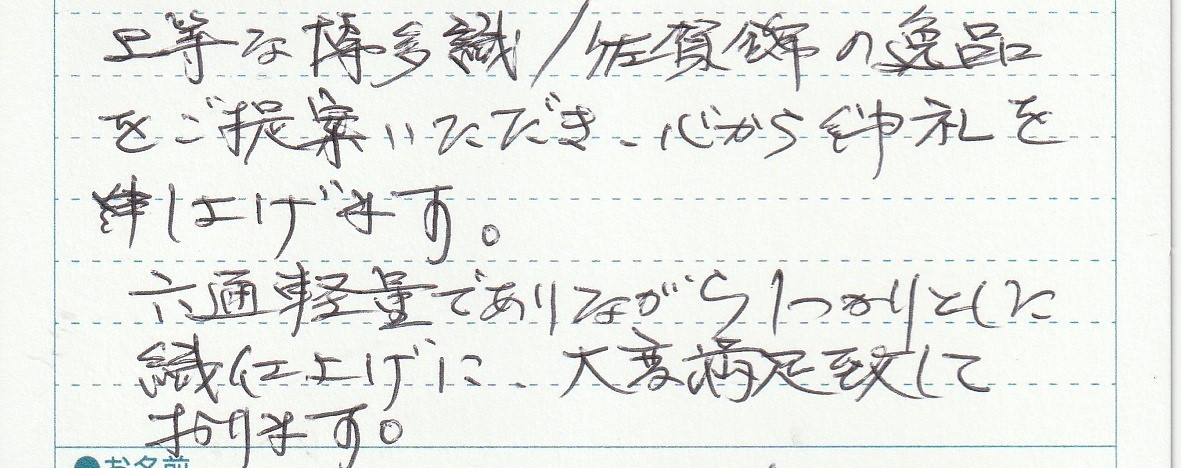 上等な博多織/佐賀錦の逸品
をご提案いただき、心から御礼を
申し上げます。
六通軽量でありながらしっかりとした
織仕上げに、大変満足致して
おります。
●お名前